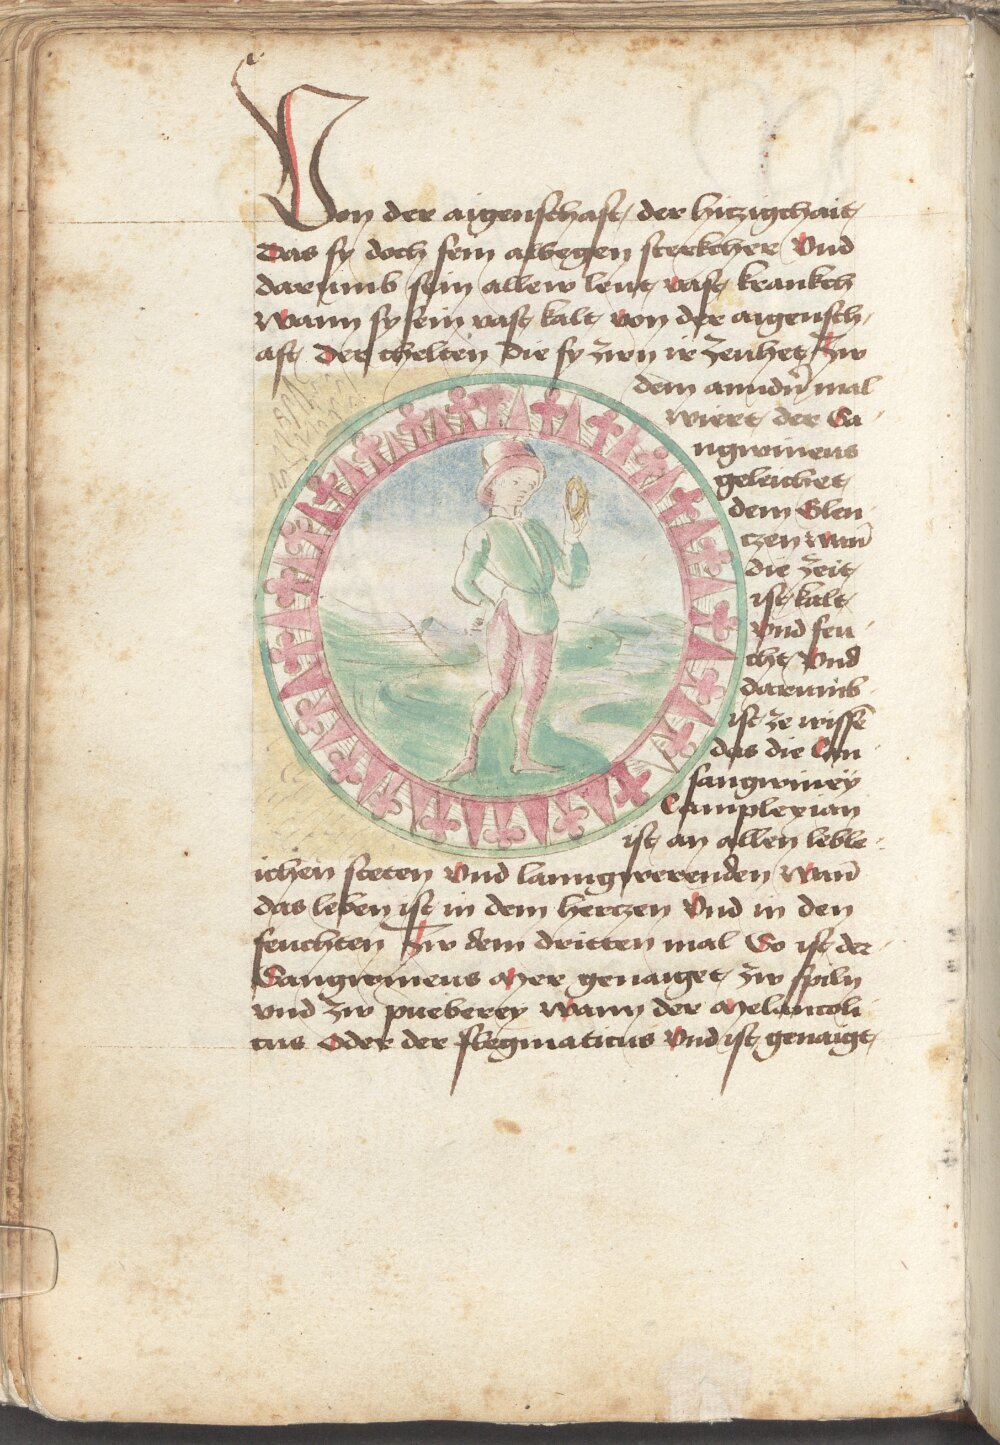 Von der aigenschaft der hitzigchait
Das sy doch sein albegen sterkcher Vnd
darumb sein allew lewt vast krankch
Wann sy sein vast kalt von der aigensch
aft Der chelten Die sy zwn ir zeuhet Zw
dem anndn̄ mal
wiert der Sa
ngwineus
geleichet
dem Glen
czen wan̄
die zeit
ist kalt
Vnd feu
cht Vnd
darumb
ist ze wissn̄
das die Con
sangwiney
Complexion
ist an allen leble
ichen steten Vnd lanngwerenden wan̄
das leben ist in dem herczen Vnd in den
feuchten Zw dem dritten mal So ist der
Sangwineus Mer genaiget zw spiln
vnd zw pueberey wann der Melancoli
cus Oder der flegmaticus Vnd ist genaigt